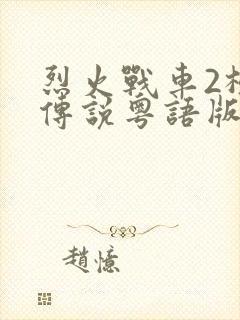 烈火戰車2
傳說粵語版
趙憶